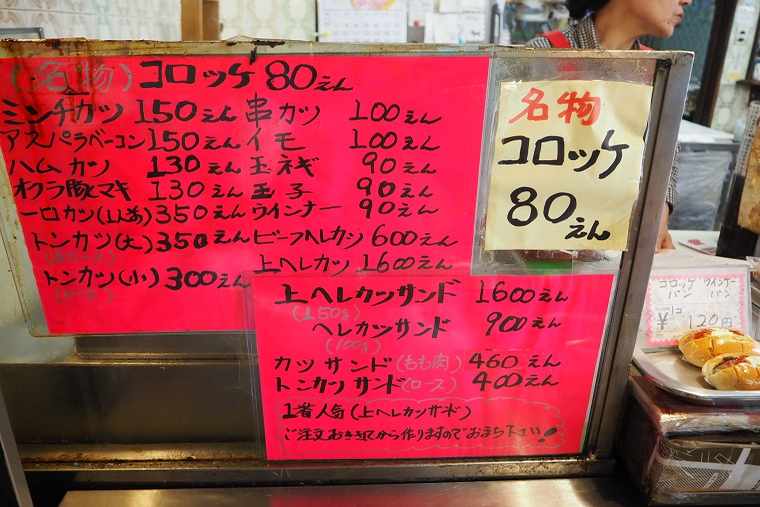 (名物) コロッケ 80えん
ミンチカツ 150えん
アスパラベーコン 150えん
ハムカツ 130えん
オクラ豚マキ 130えん
一口カツ(1人前) 350えん
トンカツ(大) 350えん
トンカツ(小) 300えん
串カツ 100えん
イモ 100えん
玉ネギ 90えん
玉子 90えん
ウインナー 90えん
ビーフヘレカツ 600えん
上ヘレカツ 1600えん
上ヘレカツサンド 1600えん
(150g)
ヘレカツサンド 900えん
(100g)
カツサンド(もも肉) 460えん
トンカツサンド(ロース) 400えん
1番人気(上ヘレカツサンド)
ご注文おききしてから作りますのでおまち下さい!
名物
コロッケ
80えん
コロッケ ウインナー
パン パン
1コ
¥120円